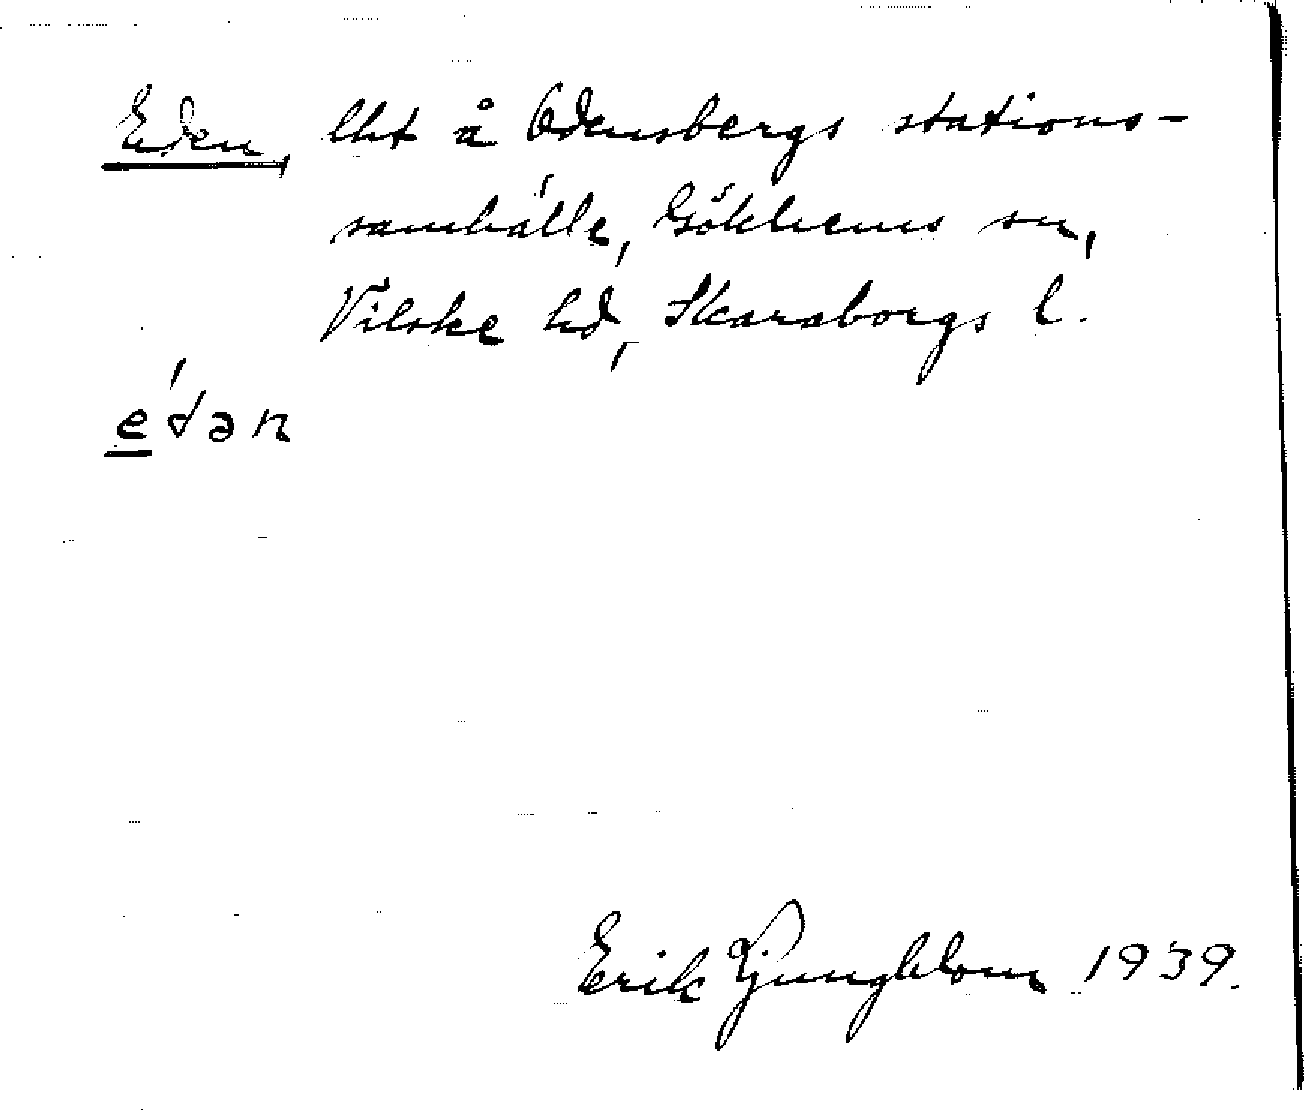 Eden, lht å Odensbergs stations-
samhälle, Gökhems sn,
Vilske hd, Skaraborgs l.
e̱´dən
Erik Ljungblom 1939.